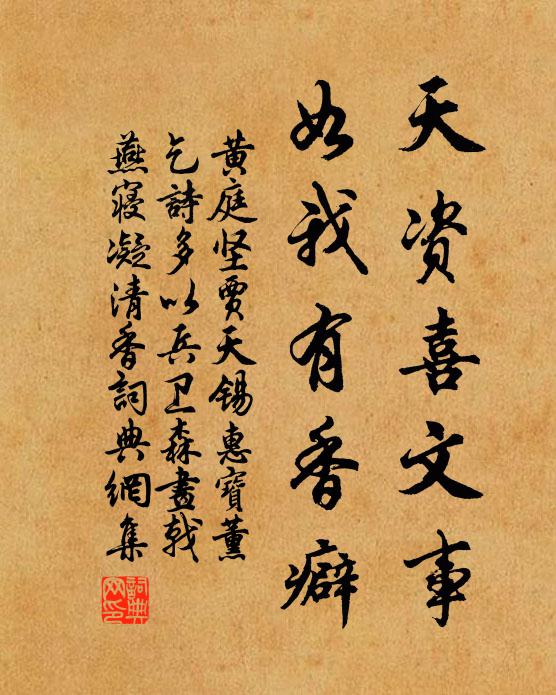 天资喜文事
如我有香癖
黄庭坚贾天锡惠寶薰
乞詩多以兵卫森畫戟
燕寝凝清香詞典網集
詞典网印